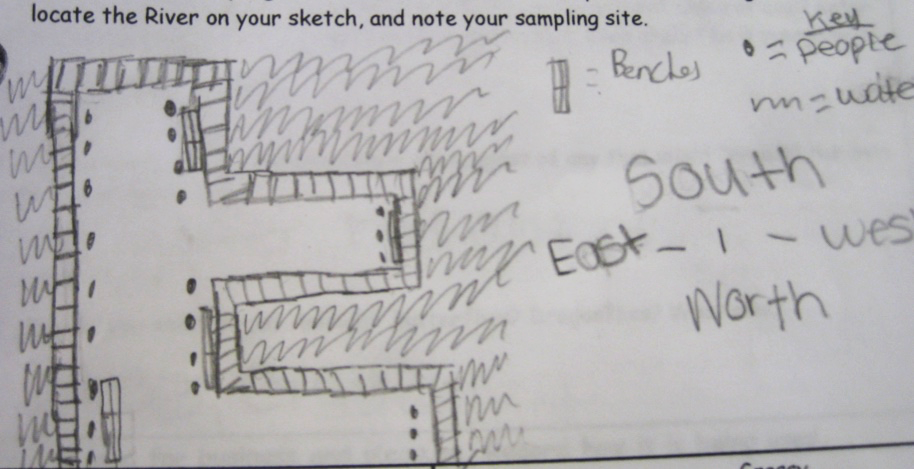 locate the River on your sketch, and note your sampling site.
Key
= people
= Benches
= wate
South
East - 1 - wes
North